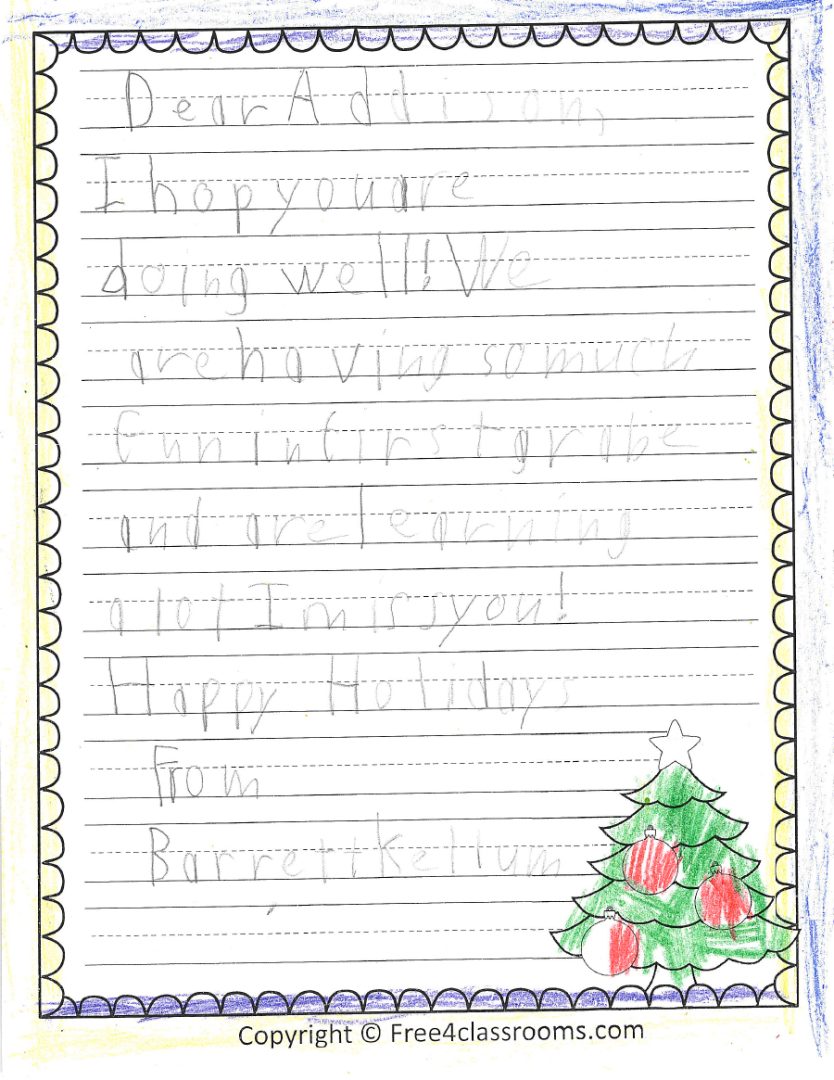 Dear Addison,
I hop you are
doing well! We
are having so much
fun in first grabe
and are learning
a lot I miss you!
Happy Holidays
From
Barrett Kellum
Copyright © Free4classrooms.com